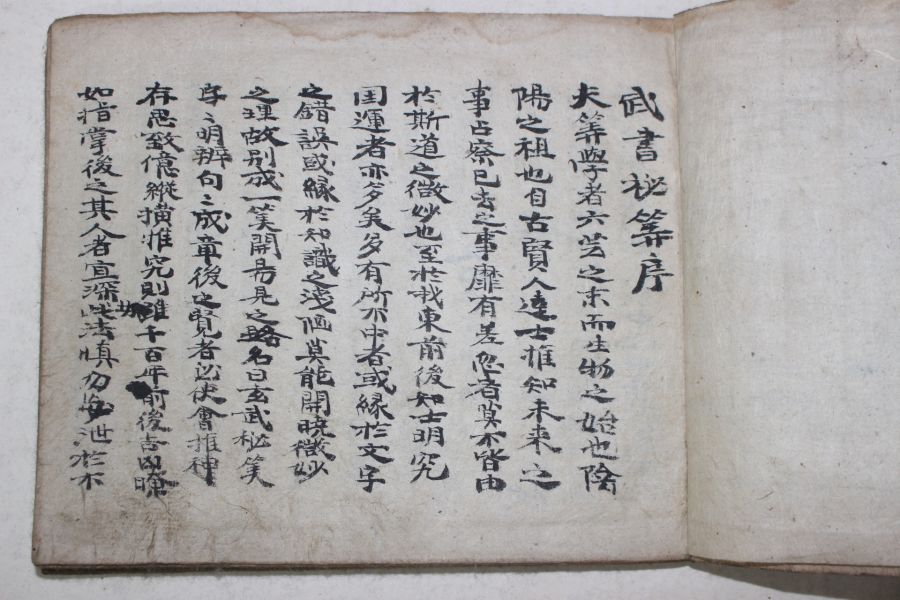 武書秘筭序
夫筭學者六芸之末而生物之始也陰
陽之祖也自古賢人達士推知未来之
事占察已去之事靡有差忽者莫不皆由
於斯道之微妙也至於我東前後知士明究
国運者亦多矣多有所不中者或緣於文字
之錯誤或緣於知識之浅個莫能開暁微妙
之理故別成一笑開易見之路名曰玄武秘笑
字〻明辨句〻成章後之賢者必使會推神
存思致億縱橫推究則雖千百年前後吉凶瞭
如指掌後之其人者宜深此法慎勿妄泄於不